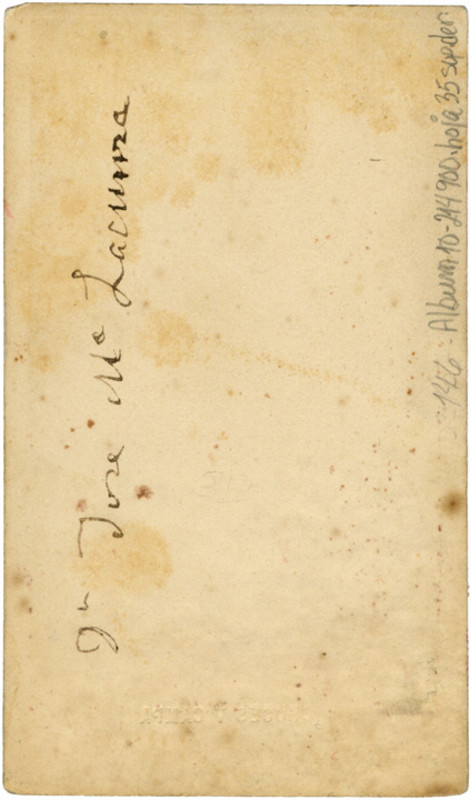 Jn Jose Ma Lacunza
146 - Album 10-214900. hoja 35 sup. der.